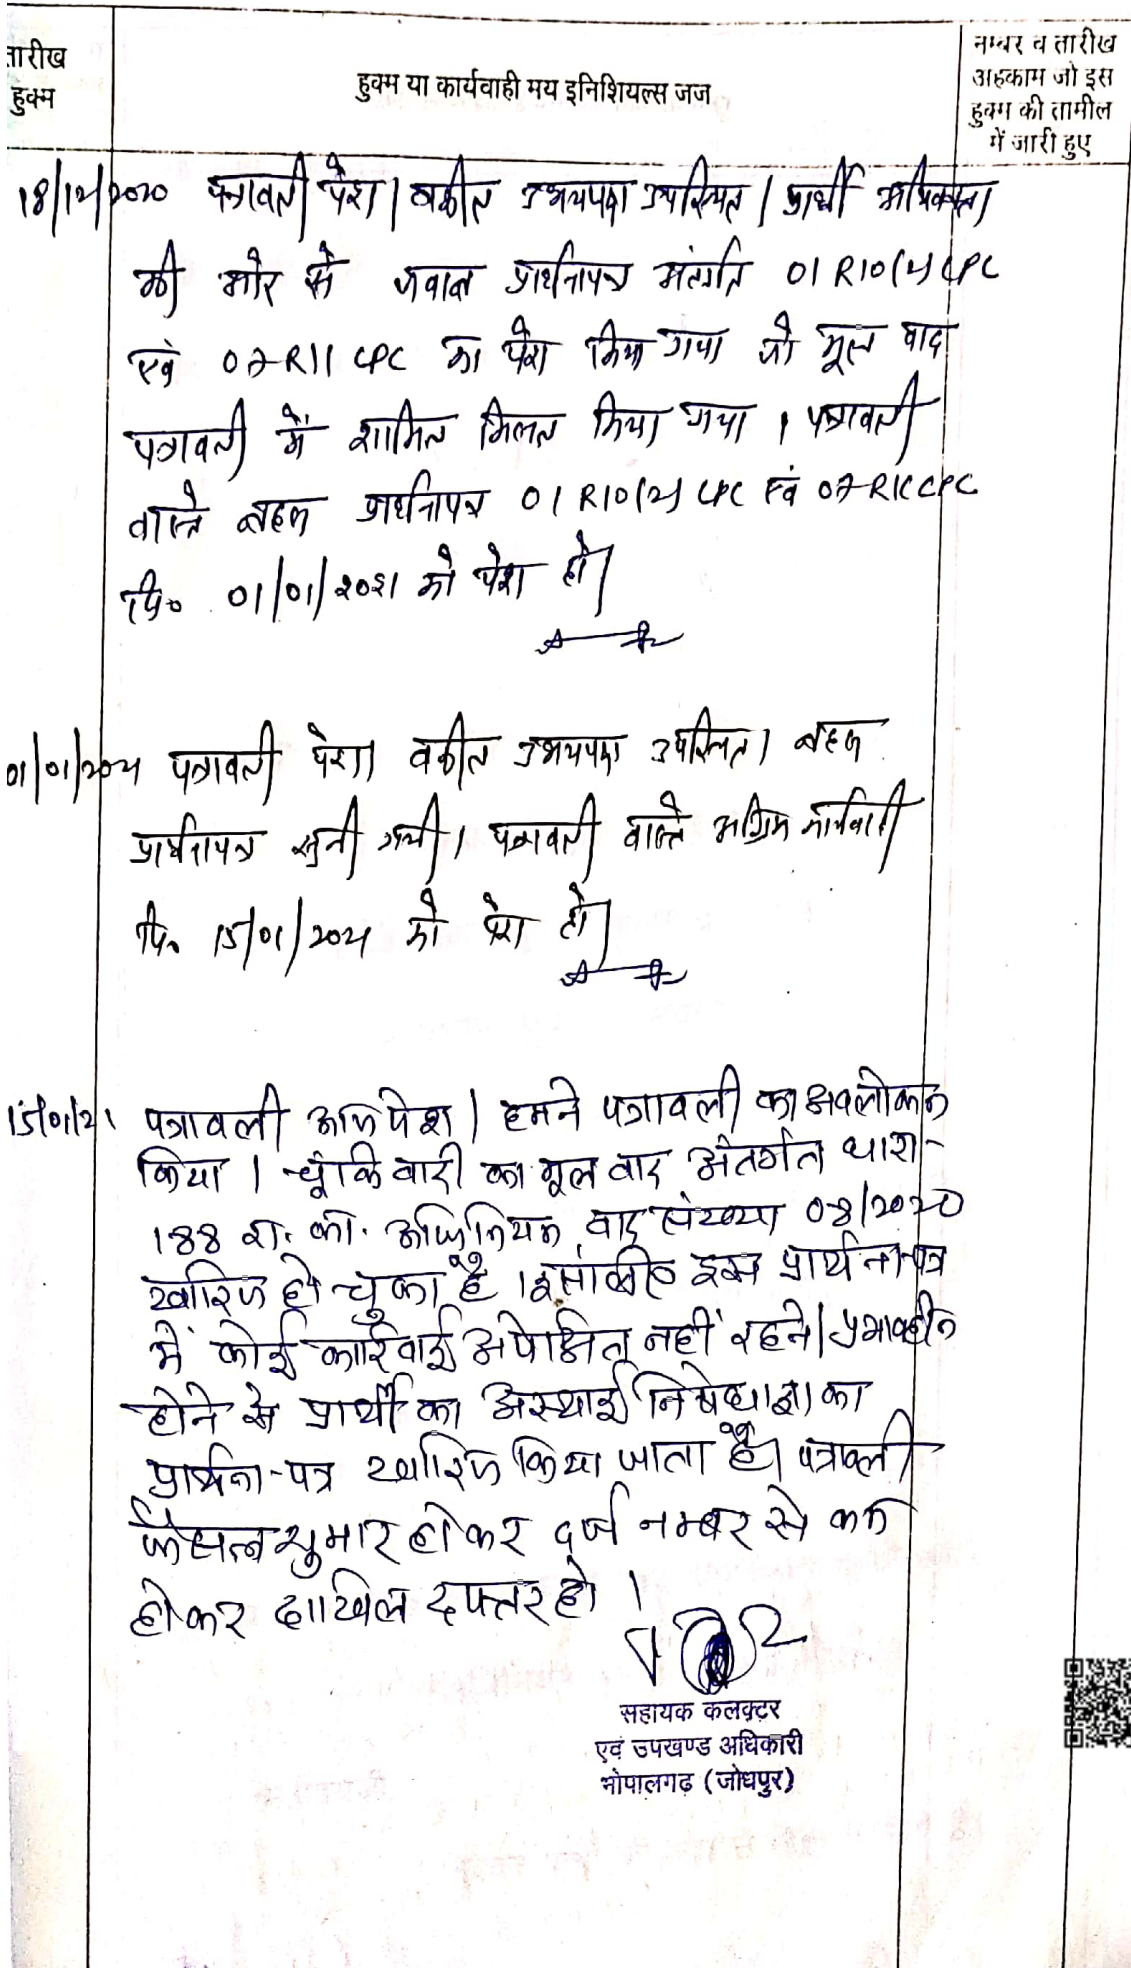 तारीख
हुक्म
हुक्म या कार्यवाही मय इनिशियल्स जज
नम्बर व तारीख
अहकाम जो इस
हुक्म की तामील
में जारी हुए
18/12/2020 पत्रावली पेश। वकील उभयपक्ष उपस्थित। प्रार्थी अधिवक्ता
की ओर से जवाब प्रार्थनापत्र अंतर्गत 01 R10(2) CPC
एवं 07 R11 CPC का पेश किया गया जो मूल वाद
पत्रावली में शामिल मिसल किया गया। पत्रावली
वास्ते बहस प्रार्थनापत्र 01 R10(2) CPC एवं 07 R11 CPC
दि० 01/01/2021 को पेश हो।
01/01/2021 पत्रावली पेश। वकील उभयपक्ष उपस्थित। बहस
प्रार्थनापत्र सुनी गयी। पत्रावली वास्ते अग्रिम कार्यवाही
दि० 15/01/2021 को पेश हो।
15/01/21 पत्रावली पेश। हमने पत्रावली का अवलोकन
किया। चूंकि वादी का मूल वाद अंतर्गत धारा-
188 रा. का. अधिनियम वाद संख्या 08/2020
खारिज हो चुका है। इसलिए इस प्रार्थना पत्र
में कोई कार्रवाई अपेक्षित नहीं रहने। प्रभावहीन
होने से प्रार्थी का अस्थाई निषेधाज्ञा का
प्रार्थना-पत्र खारिज किया जाता है। पत्रावली
फैसल शुमार होकर दर्ज नम्बर से कम
होकर दाखिल दफ्तर हो।
सहायक कलक्टर
एवं उपखण्ड अधिकारी
भोपालगढ़ (जोधपुर)